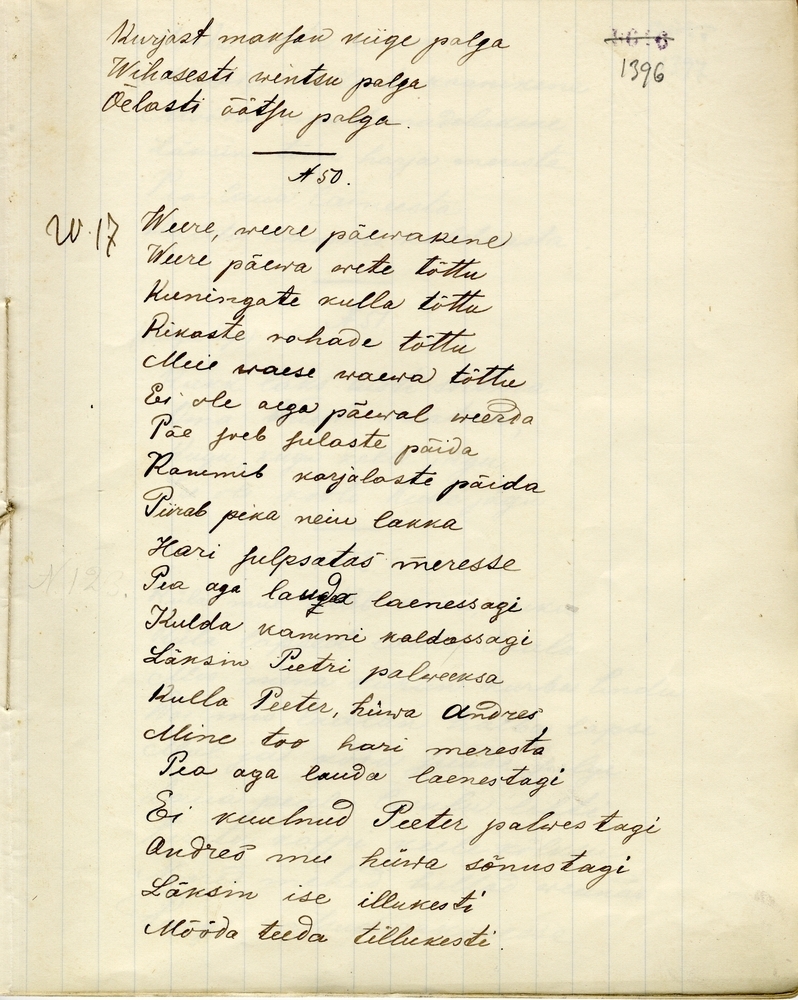 Kurjast maksan kiige palga
Wihasesti wintsu palga
Õelasti öötsu palga.
1396
№ 50.
W. 17
Weere, weere päewakene
Weere päewa wete tõttu
Kuningate kulla tõttu
Rikaste rohade tõttu
Meie waese waewa tõttu
Ei ole aega päewal weerda
Päe soeb sulaste päida
Kammib karjalaste päida
Piirab pika neiu lakka
Hari sulpsatas meresse
Pea aga lauda laenessagi
Kulda kammi kaldassagi
Läksin Peetri palweeksa
Kulla Peeter, hüwa Andres
Mine too hari meresta
Pea aga lauda laenestagi
Ei kuulnud Peeter palwestagi
Andres mu hüwa sõnustagi
Läksin ise illukesti
Mööda teeda tillukesti.